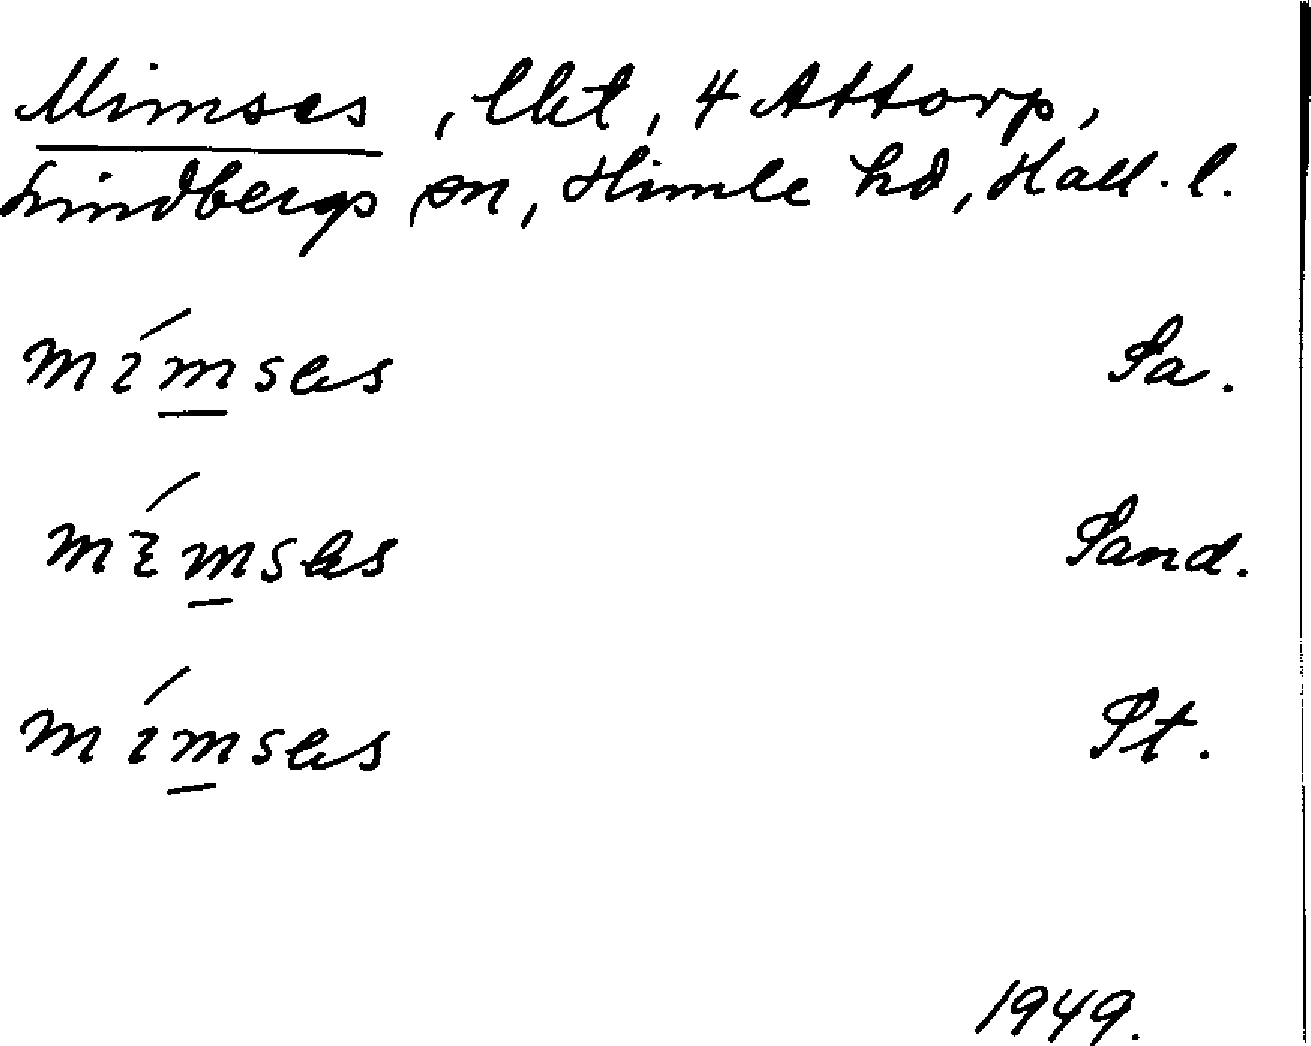 Mimses, lht, 4 Attorp,
Lindbergs sn, Himle hd, Hall. l.
mímses Sa.
mímses Sand.
mímses St.
1949.